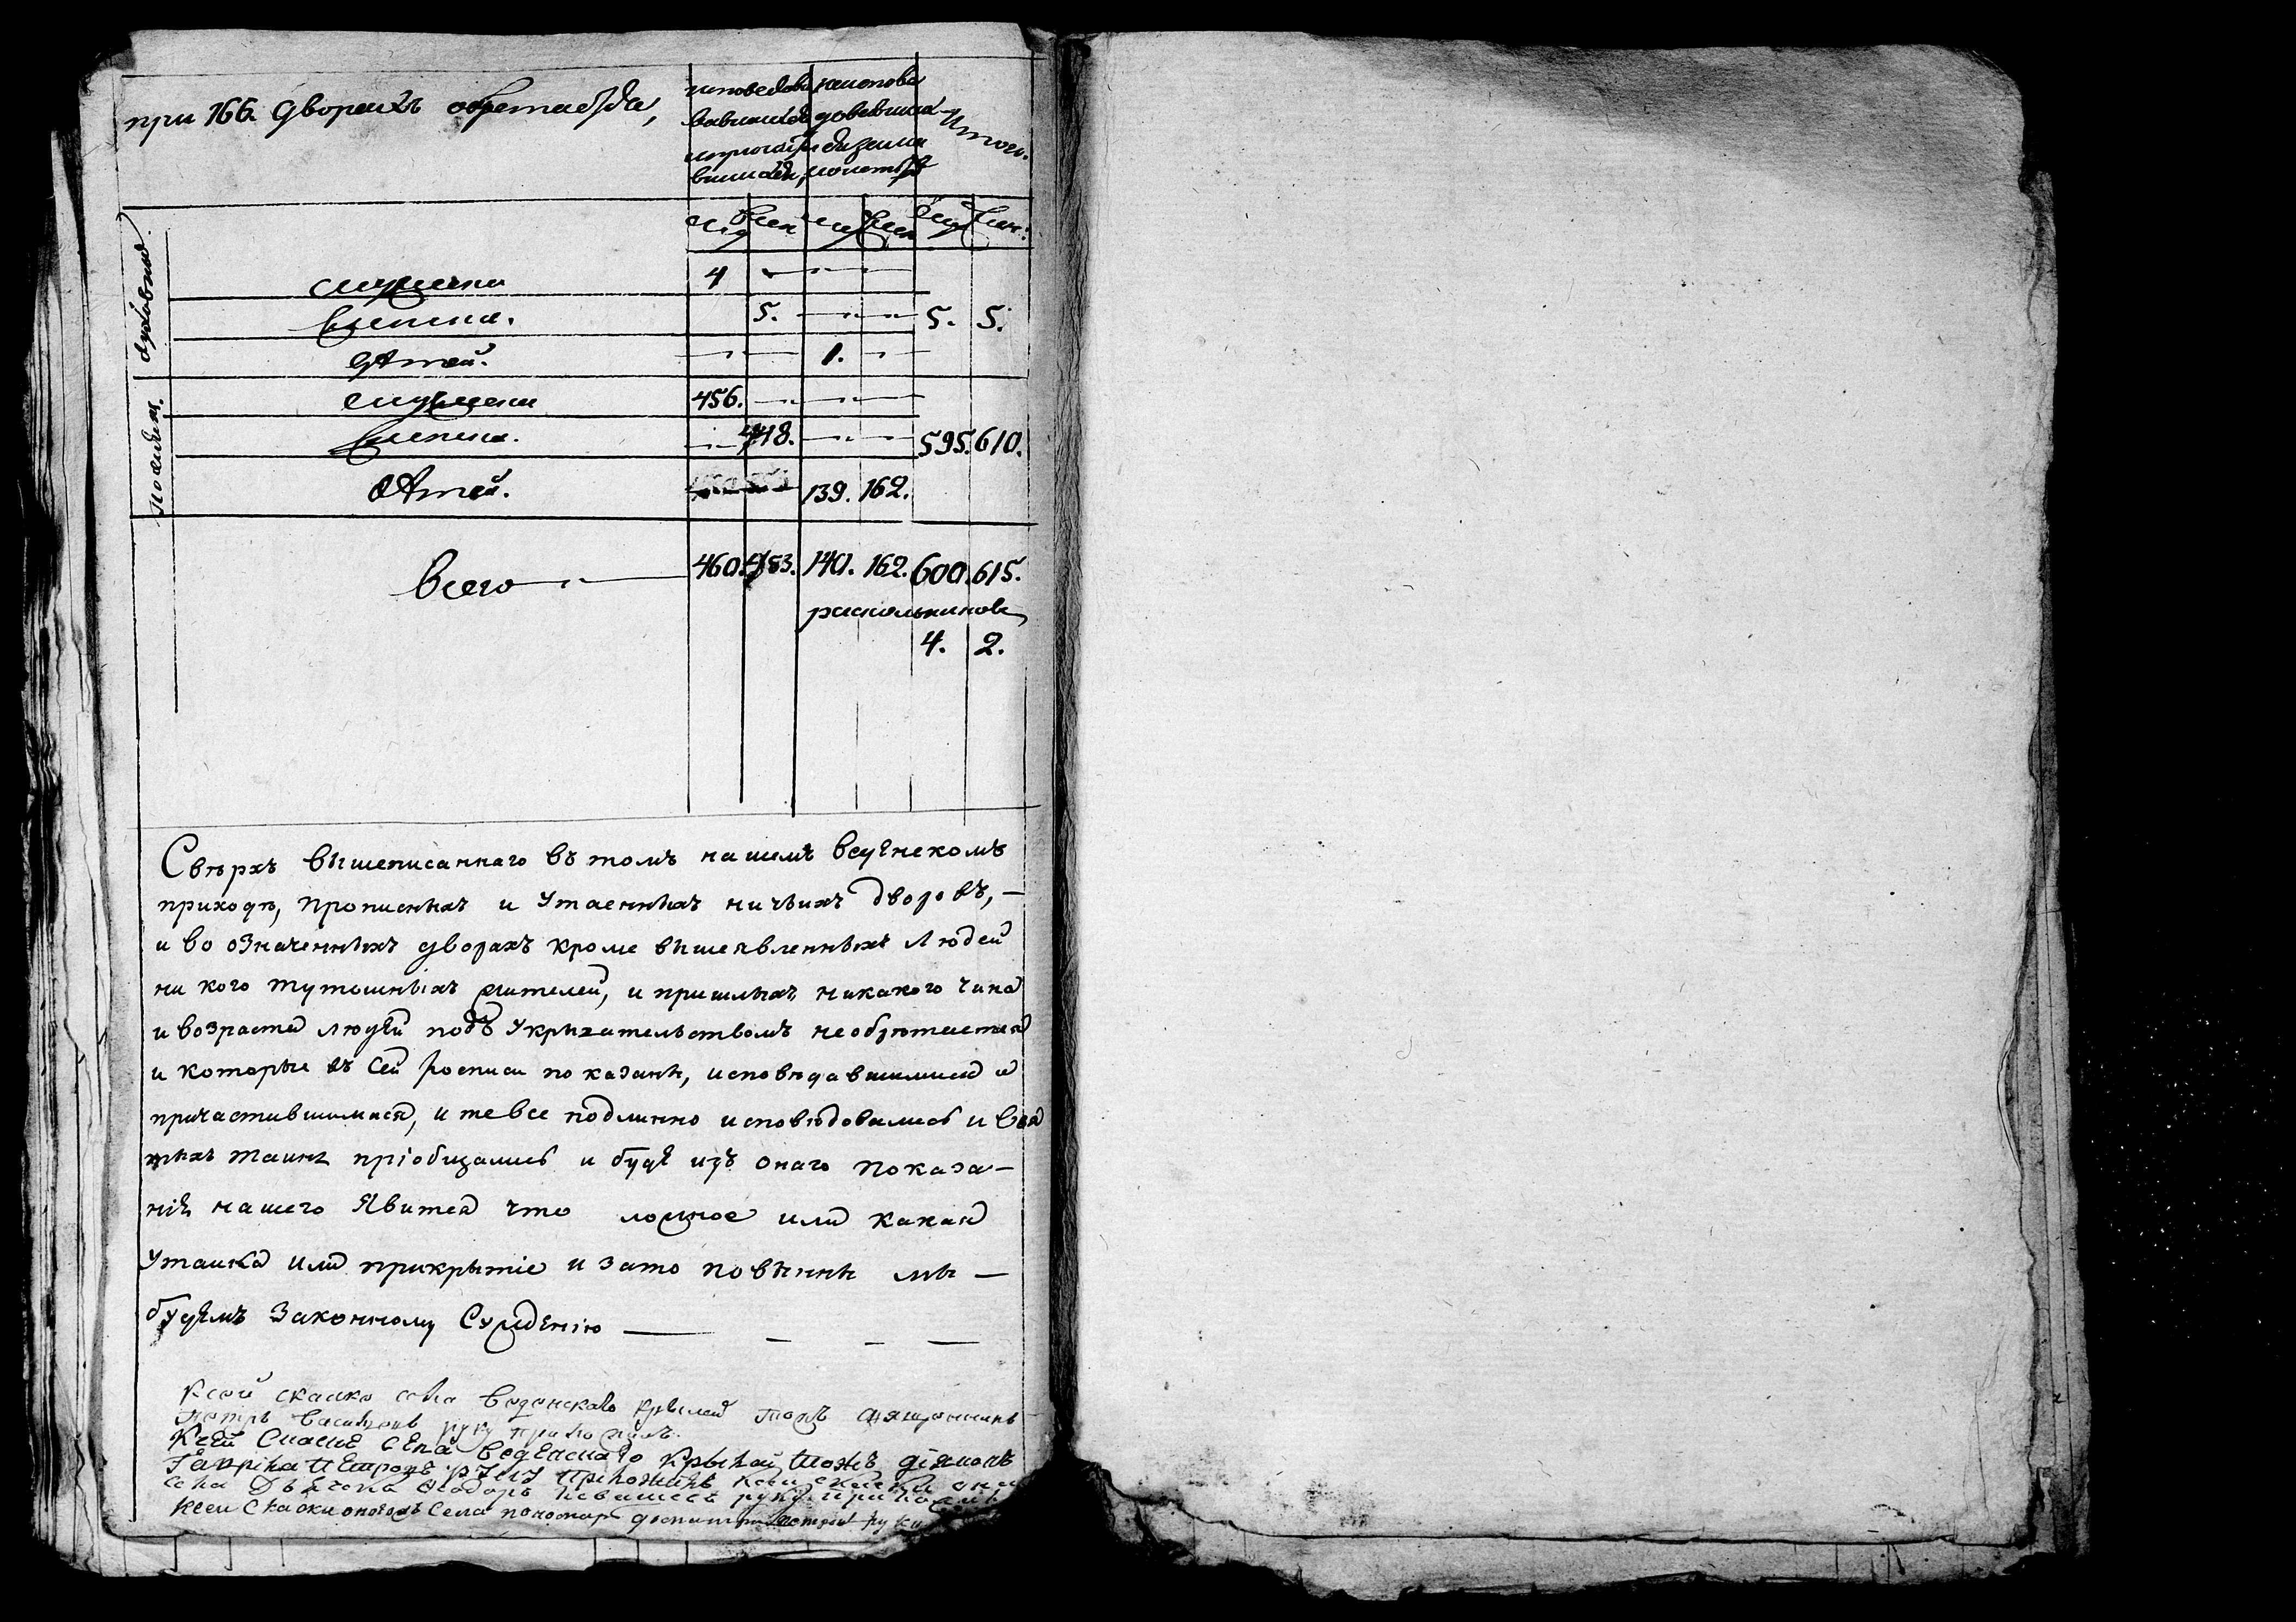 при 166. дворахъ обретается,
исповедо неиспове Итого.
вавшихся довавшихся
ипричасти едиземи
вшихся, нолетст
муж жен муж жен муж жен:
духовных.
мужеска 4
женска. 5. 5. 5.
дѣтей. 1.
Поселян.
мужеска 456.
женска. 448. 595. 610.
дѣтей. 139. 162.
Всего 460. 453. 140. 162. 600. 615.
раскольников
4. 2.
Свѣрхъ вышеписаннаго въ томъ нашемъ веденскомъ
приходѣ, прописныхъ и утаенныхъ ничьихъ дворовъ, —
и во означенныхъ дворахъ кроме вышеявленныхъ людей
ни кого тутошныхъ жителей, и пришлыхъ никакого чина
и возраста людей подъ укрывательствомъ необрѣтается
и которые въ сей росписи показаны, исповѣдавшимися и
причастившимися, и те все подлинно исповѣдовались и свя
тыхъ таинъ пріобщались и буде изъ онаго показа—
нія нашего явится что ложное или какая
утайка или прикрытіе и зато повѣнны мы —
будемъ законному сужденію — — — —
Ксей скаске села веденскаго священникъ
Петръ Васильевъ руку приложилъ.
Ксей скаске села веденскаго діяконъ
Гаврила Петровъ руку приложилъ Ксей скаски онаго
села дьячокъ Ѳедоръ руку приложилъ
Ксей скаски оногожъ села пономарь руку